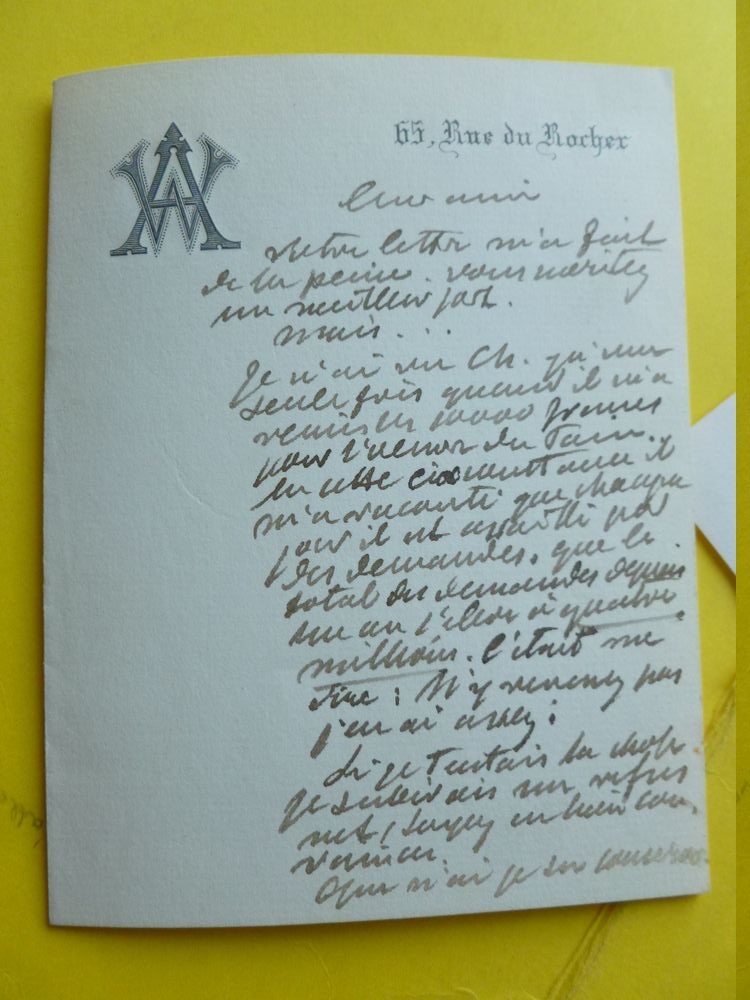 AW
65, Rue du Rocher
Cher ami
Votre lettre m'a fait
de la peine. vous méritez
un meilleur sort.
mais...
Je n'ai vu Ch. qu'une
seule fois quand il m'a
remis les 10000 francs
pour l'
En cette circonstance il
m'a raconté que chaque
jour il est assailli par
des demandes, que le
total des demandes depuis
un an s'élève à quatre
millions. C'était me
dire : N'y revenez pas
j'en ai assez :
Si je tentais la chose
je subirais un refus
net, soyez en bien con-
vaincu.
Que n'ai je su conserver